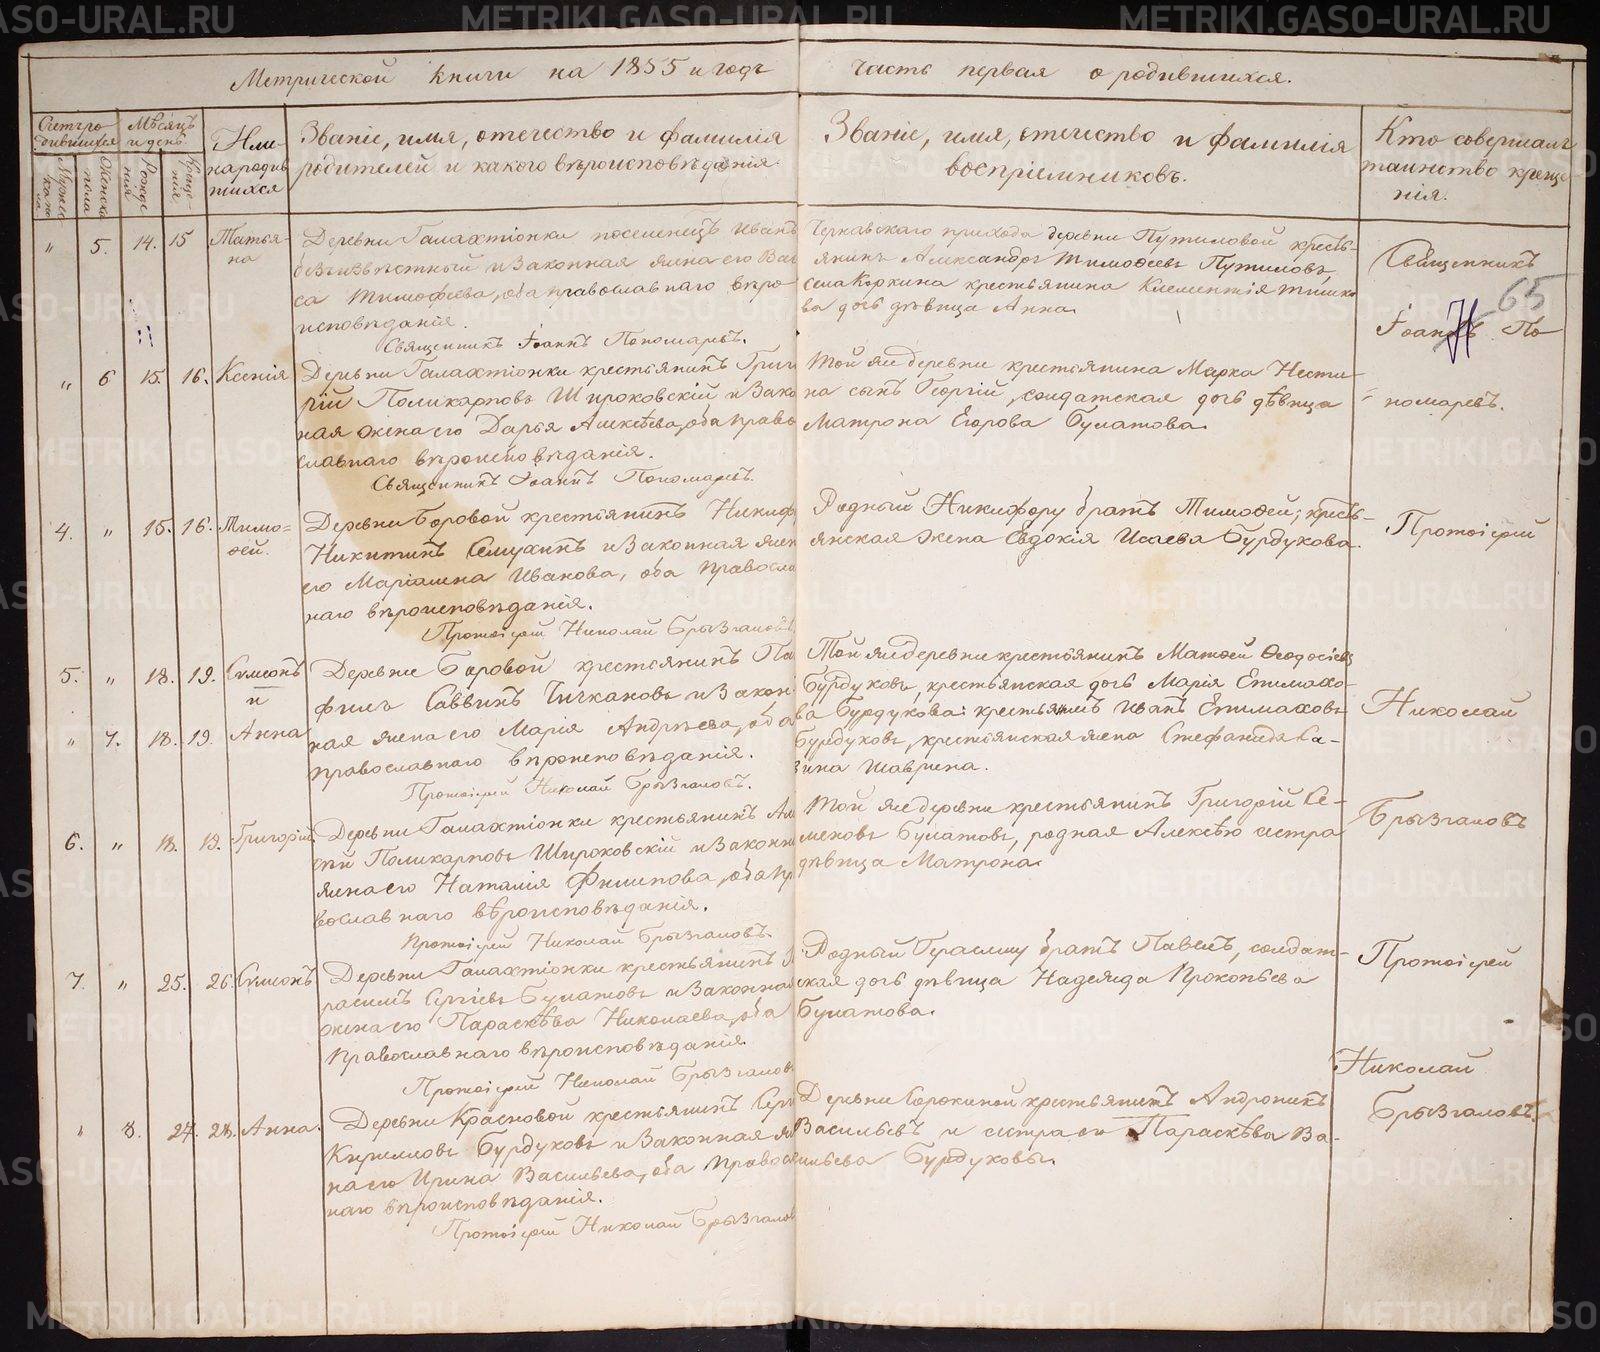 Метрической книги на 1855й годъ часть первая о родившихся.
Счетъ родившихся
Мужеска пола
Женска пола
Мѣсяцъ и день
Рожденія
Крещенія
Имена родившихся
Званіе, имя, отечество и фамилія
родителей и какого вѣроисповѣданія.
Званіе, имя, отечество и фамилія
воспріемниковъ.
Кто совершалъ
таинство креще
нія.
" 5. 14. 15 Татья-
на
Деревни Галахтіонки поселенецъ Иванъ
безъизвѣстный и законная жена его Вас
са Тимофѣева, оба православнаго вѣро
исповѣданія.
Священникъ Іоаннъ Пономаревъ.
Черкавскаго прихода деревни Путиловой кресть-
янинъ Александръ Тимофеевъ Путиловъ,
села Коркина крестьянина Клементія
дочь дѣвица Анна.
Священникъ
65
Іоаннъ По-
номаревъ.
" 6 15. 16. Ксенія
Деревни Галахтіонки крестьянинъ Григо
рій Поликарповъ Широковскій и закон
ная жена его Дарья Алексѣева, оба право
славнаго вѣроисповѣданія.
Священникъ Іоаннъ Пономаревъ.
Той же деревни крестьянина Марка Нести-
на сынъ Георгій, солдатская дочь дѣвица
Матрона Егорова Булатова.
4. " 15. 16. Тимо=
ѳей.
Деревни Боровой крестьянинъ Никиф
Никитинъ и законная жен
его Маріамна Иванова, оба правосла
наго вѣроисповѣданія.
Протоіерей Николай Брызгаловъ.
Родный Никифору братъ Тимоѳей; кресть-
янская жена Евдокія Исаева Бурдукова.
Протоіерей
Николай
Брызгаловъ
5. " 18. 19. Симеонъ
и
" 7. 18. 19. Анна
Деревни Боровой крестьянинъ Па
филъ Саввинъ Чичкановъ и закон
ная жена его Марія Андрѣева, оба
православнаго вѣроисповѣданія.
Протоіерей Николай Брызгаловъ.
Той же деревни крестьянинъ Матѳей Ѳеодосіевъ
Бурдуковъ, крестьянская дочь Марія Епимахо-
ва Бурдукова: крестьянинъ Иванъ Епимаховъ
Бурдуковъ, крестьянская жена Стефанида Са-
вина Шаврина.
6. " 18. 19. Григорій
Деревни Галахтіонки крестьянинъ Ал
сѣй Поликарповъ Широковскій и законн
жена его Наталія Филипова, оба пр
вославнаго вѣроисповѣданія.
Протоіерей Николай Брызгаловъ.
Той же деревни крестьянинъ Григорій Се-
меновъ Булатовъ, родная Алексѣю сестра
дѣвица Матрона.
7. " 25. 26. Симеонъ
Деревни Галахтіонки крестьянинъ
расимъ Сергіевъ Булатовъ и законная
жена его Параскѣва Николаева, оба
православнаго вѣроисповѣданія.
Протоіерей Николай Брызгаловъ
Родный Герасиму братъ Павелъ, солдат-
ская дочь дѣвица Надежда Прокопьева
Булатова.
Протоіерей
Николай
Брызгаловъ.
" 8. 27. 28. Анна.
Деревни Красновой крестьянинъ Серг
Кириловъ Бурдуковъ и законная же
на его Ирина Васильева, оба правос
наго вѣроисповѣданія.
Протоіерей Николай Брызгалов
Деревни Сорокиной крестьянинъ Андроникъ
Васильевъ и сестра его Параскѣва Ва-
сильева Бурдуковы.
METRIKI.GASO-URAL.RU